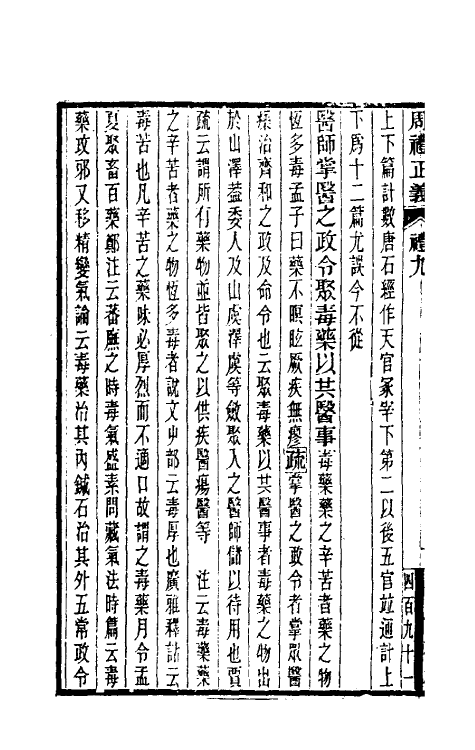 周禮正義 禮九 四百九十一
上下篇計數唐石經作天官冢宰下第二以後五官竝通計上
下爲十二篇尤誤今不從
醫師掌醫之政令聚毒藥以共醫事毒藥藥之辛苦者藥之物
恆多毒孟子曰藥不瞑眩厥疾無瘳疏掌醫之政令者掌眾醫
療治齊和之政及命令也云聚毒藥以共醫事者毒藥之物出
於山澤葢委人及山虞澤虞等斂聚入之醫師儲以待用也賈
疏云謂所有藥物並皆聚之以供疾醫瘍醫等 注云毒藥藥
之辛苦者藥之物恆多毒者說文屮部云毒厚也廣雅釋詁云
毒苦也凡辛苦之藥味必厚烈而不適口故謂之毒藥月令孟
夏聚畜百藥鄭注云蕃廡之時毒氣盛素問藏氣法時篇云毒
藥攻邪又移精變氣論云毒藥治其內鍼石治其外五常政令